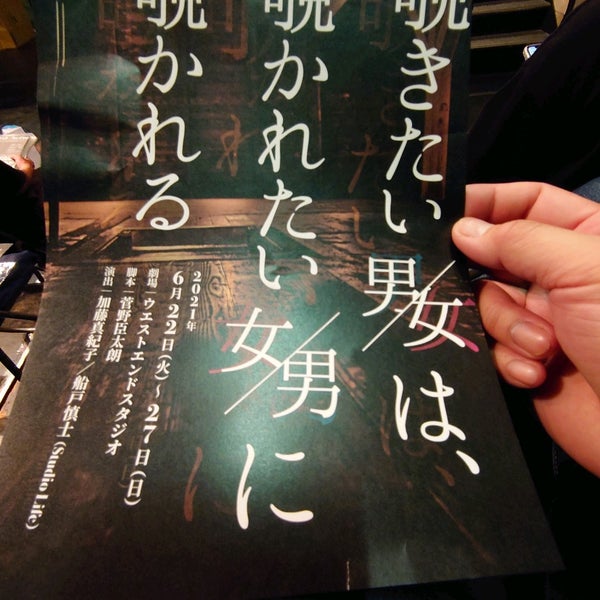 覗きたい男/女は、
覗かれたい女/男に
覗かれる
2021年
6月22日(火)〜27日(日)
劇場｜ウエストエンドスタジオ
脚本｜菅野臣太朗
演出｜加藤真紀子／船戸慎士(Studio Life)